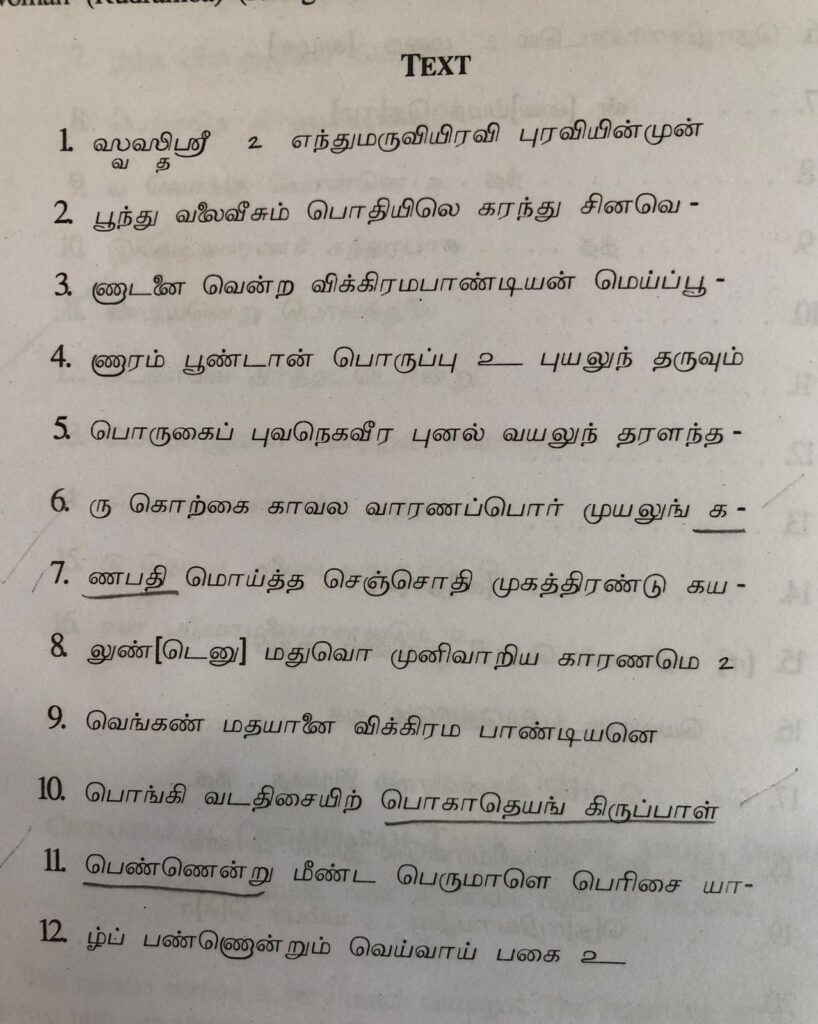 woman (Rudramba)
TEXT
1. ஸ்வஸ்திஸ்ரீ உ எந்துமருவியிரவி புரவியின்முன்
2. பூந்து வலைவீசும் பொதியிலெ கரந்து சினவெ -
3. ணாடனை வென்ற விக்கிரமபாண்டியன் மெய்ப்பூ -
4. ணாரம் பூண்டான் பொருப்பு உ புயலுந் தருவும்
5. பொருகைப் புவநெகவீர புனல் வயலுந் தரளந்த -
6. ரு கொற்கை காவல வாரணப்பொர் முயலுங் க -
7. ணபதி மொய்த்த செஞ்சொதி முகத்திரண்டு கய -
8. லுண்[டெனு] மதுவொ முனிவாறிய காரணமெ உ
9. வெங்கண் மதயானை விக்கிரம பாண்டியனெ
10. பொங்கி வடதிசையிற் பொகாதெயங் கிருப்பாள்
11. பெண்ணென்று மீண்ட பெருமாளெ பெரிசை யா-
12. ழ்ப் பண்ணொன்றும் வெய்வாய் பகை உ